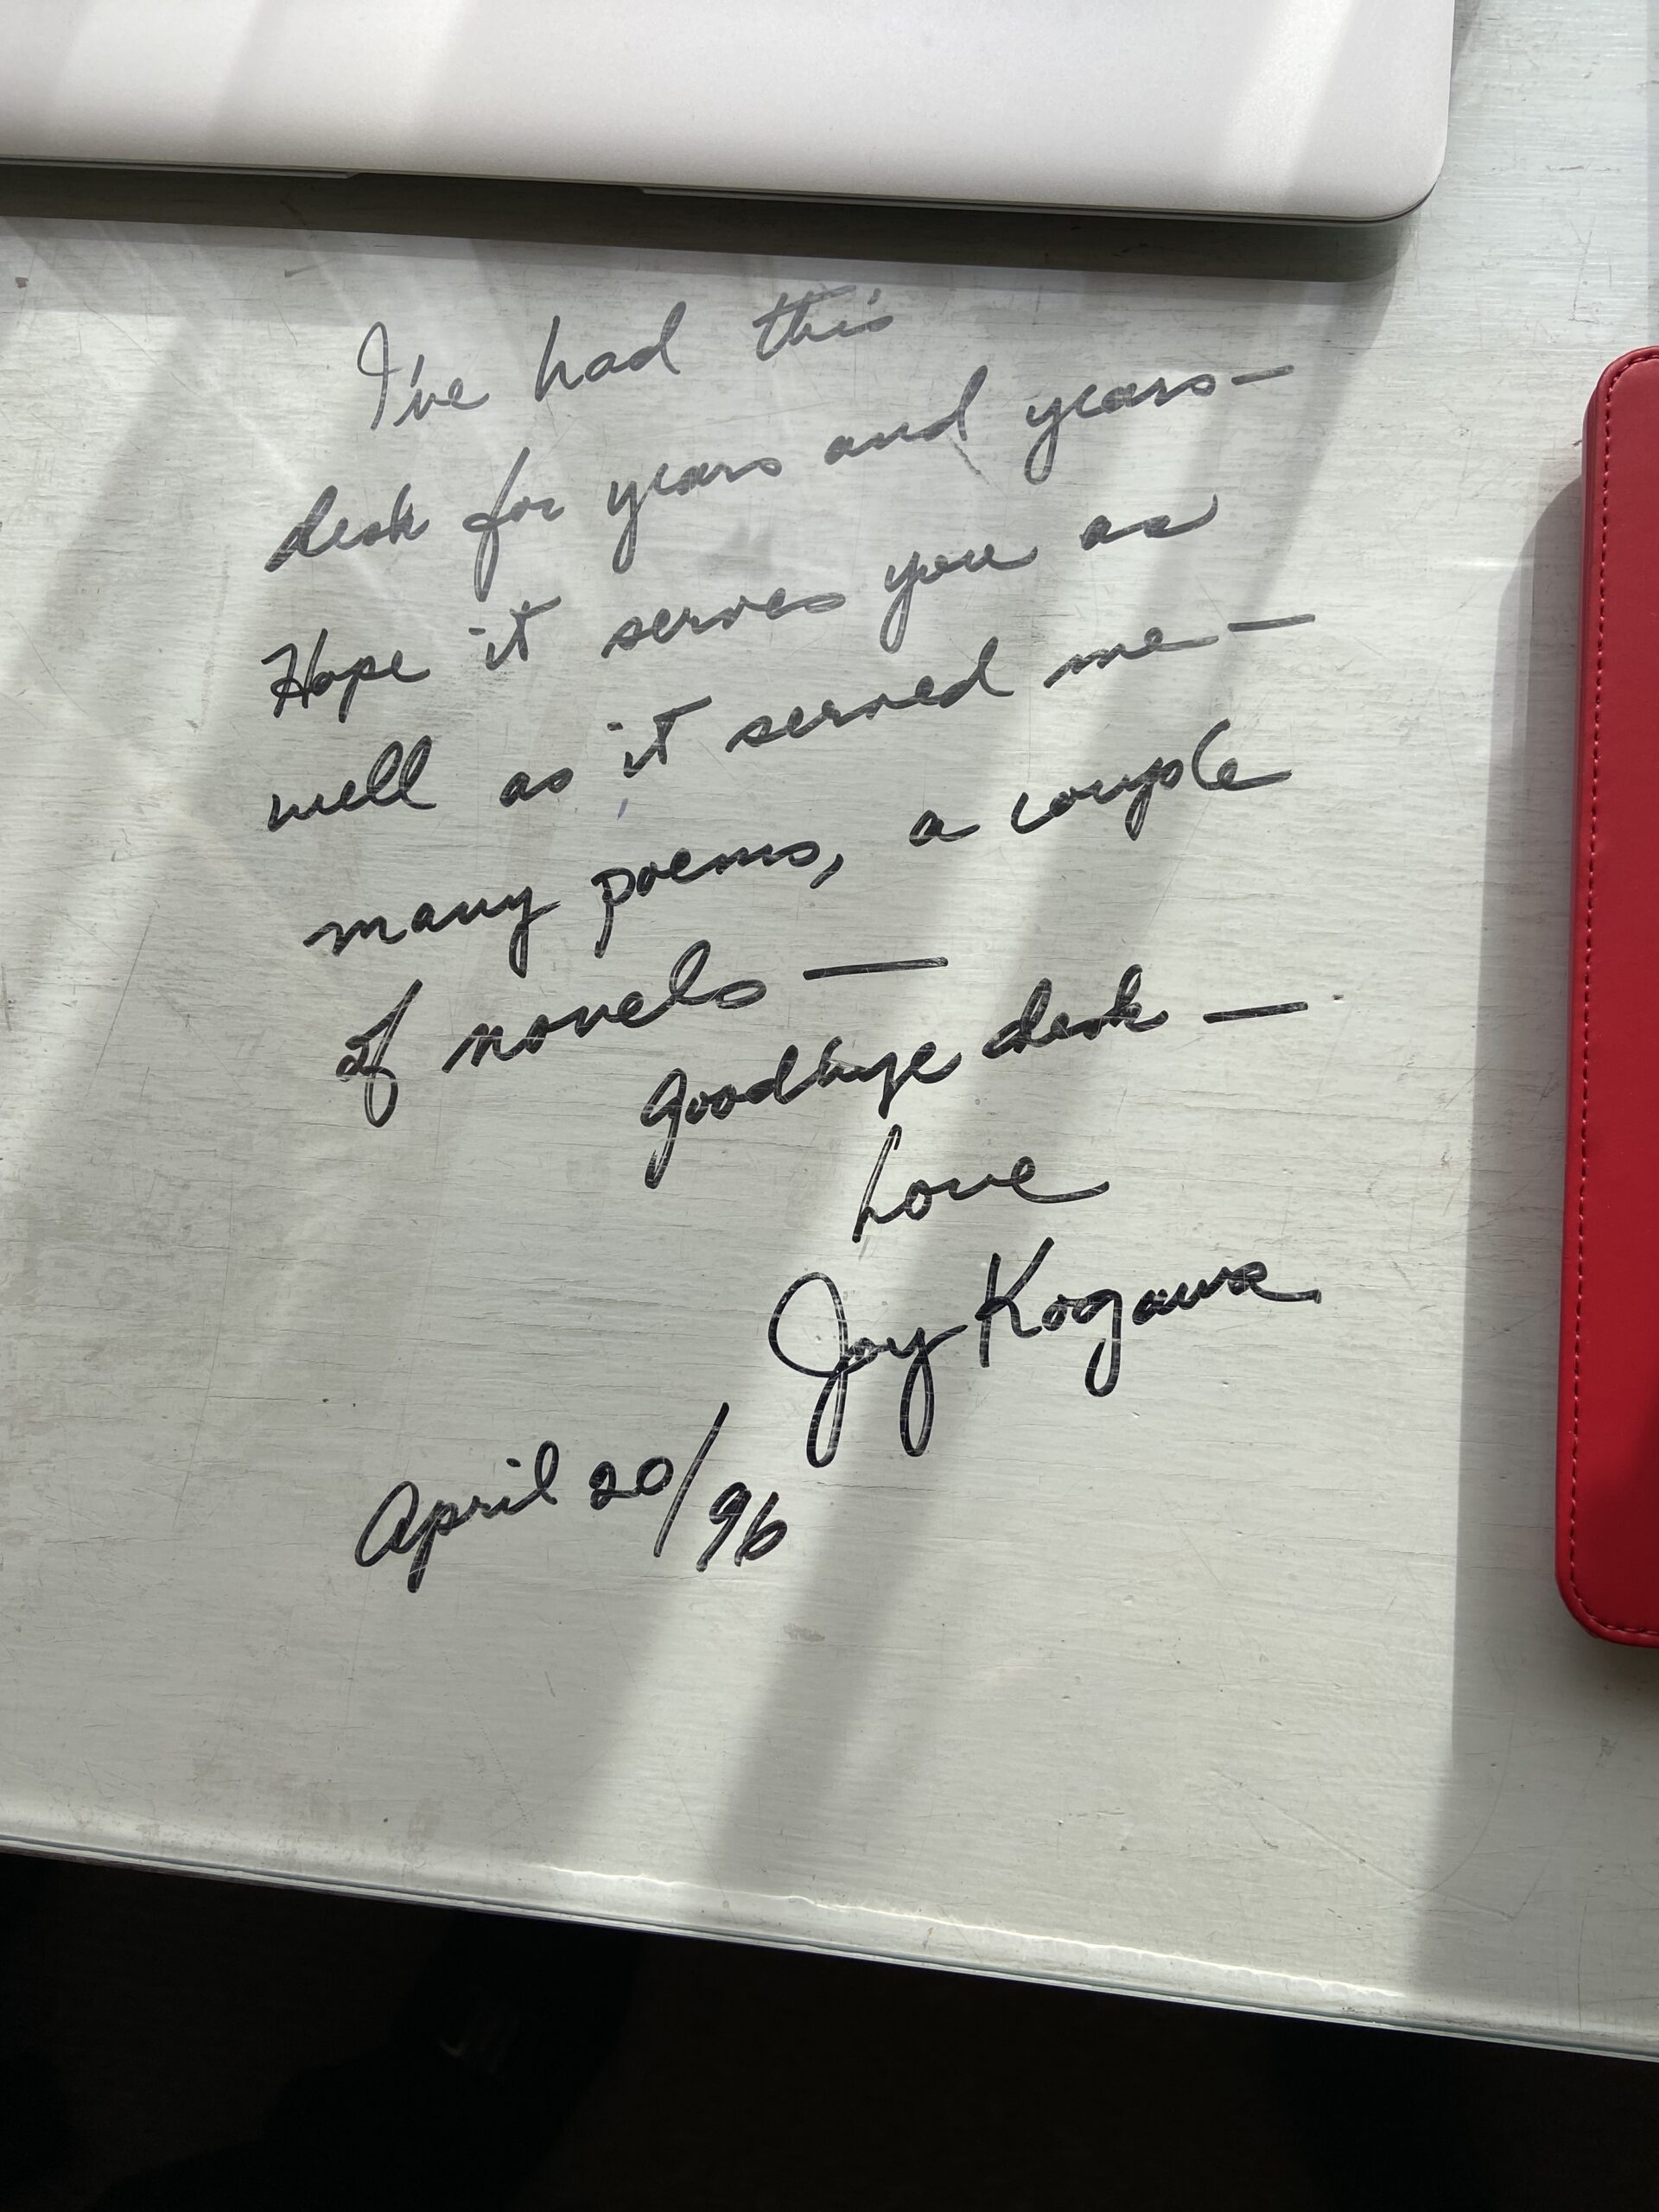 I've had this
desk for years and years—
Hope it serves you as
well as it served me—
many poems, a couple
of novels —
Goodbye desk —
Love
Joy Kogawa
April 20/96